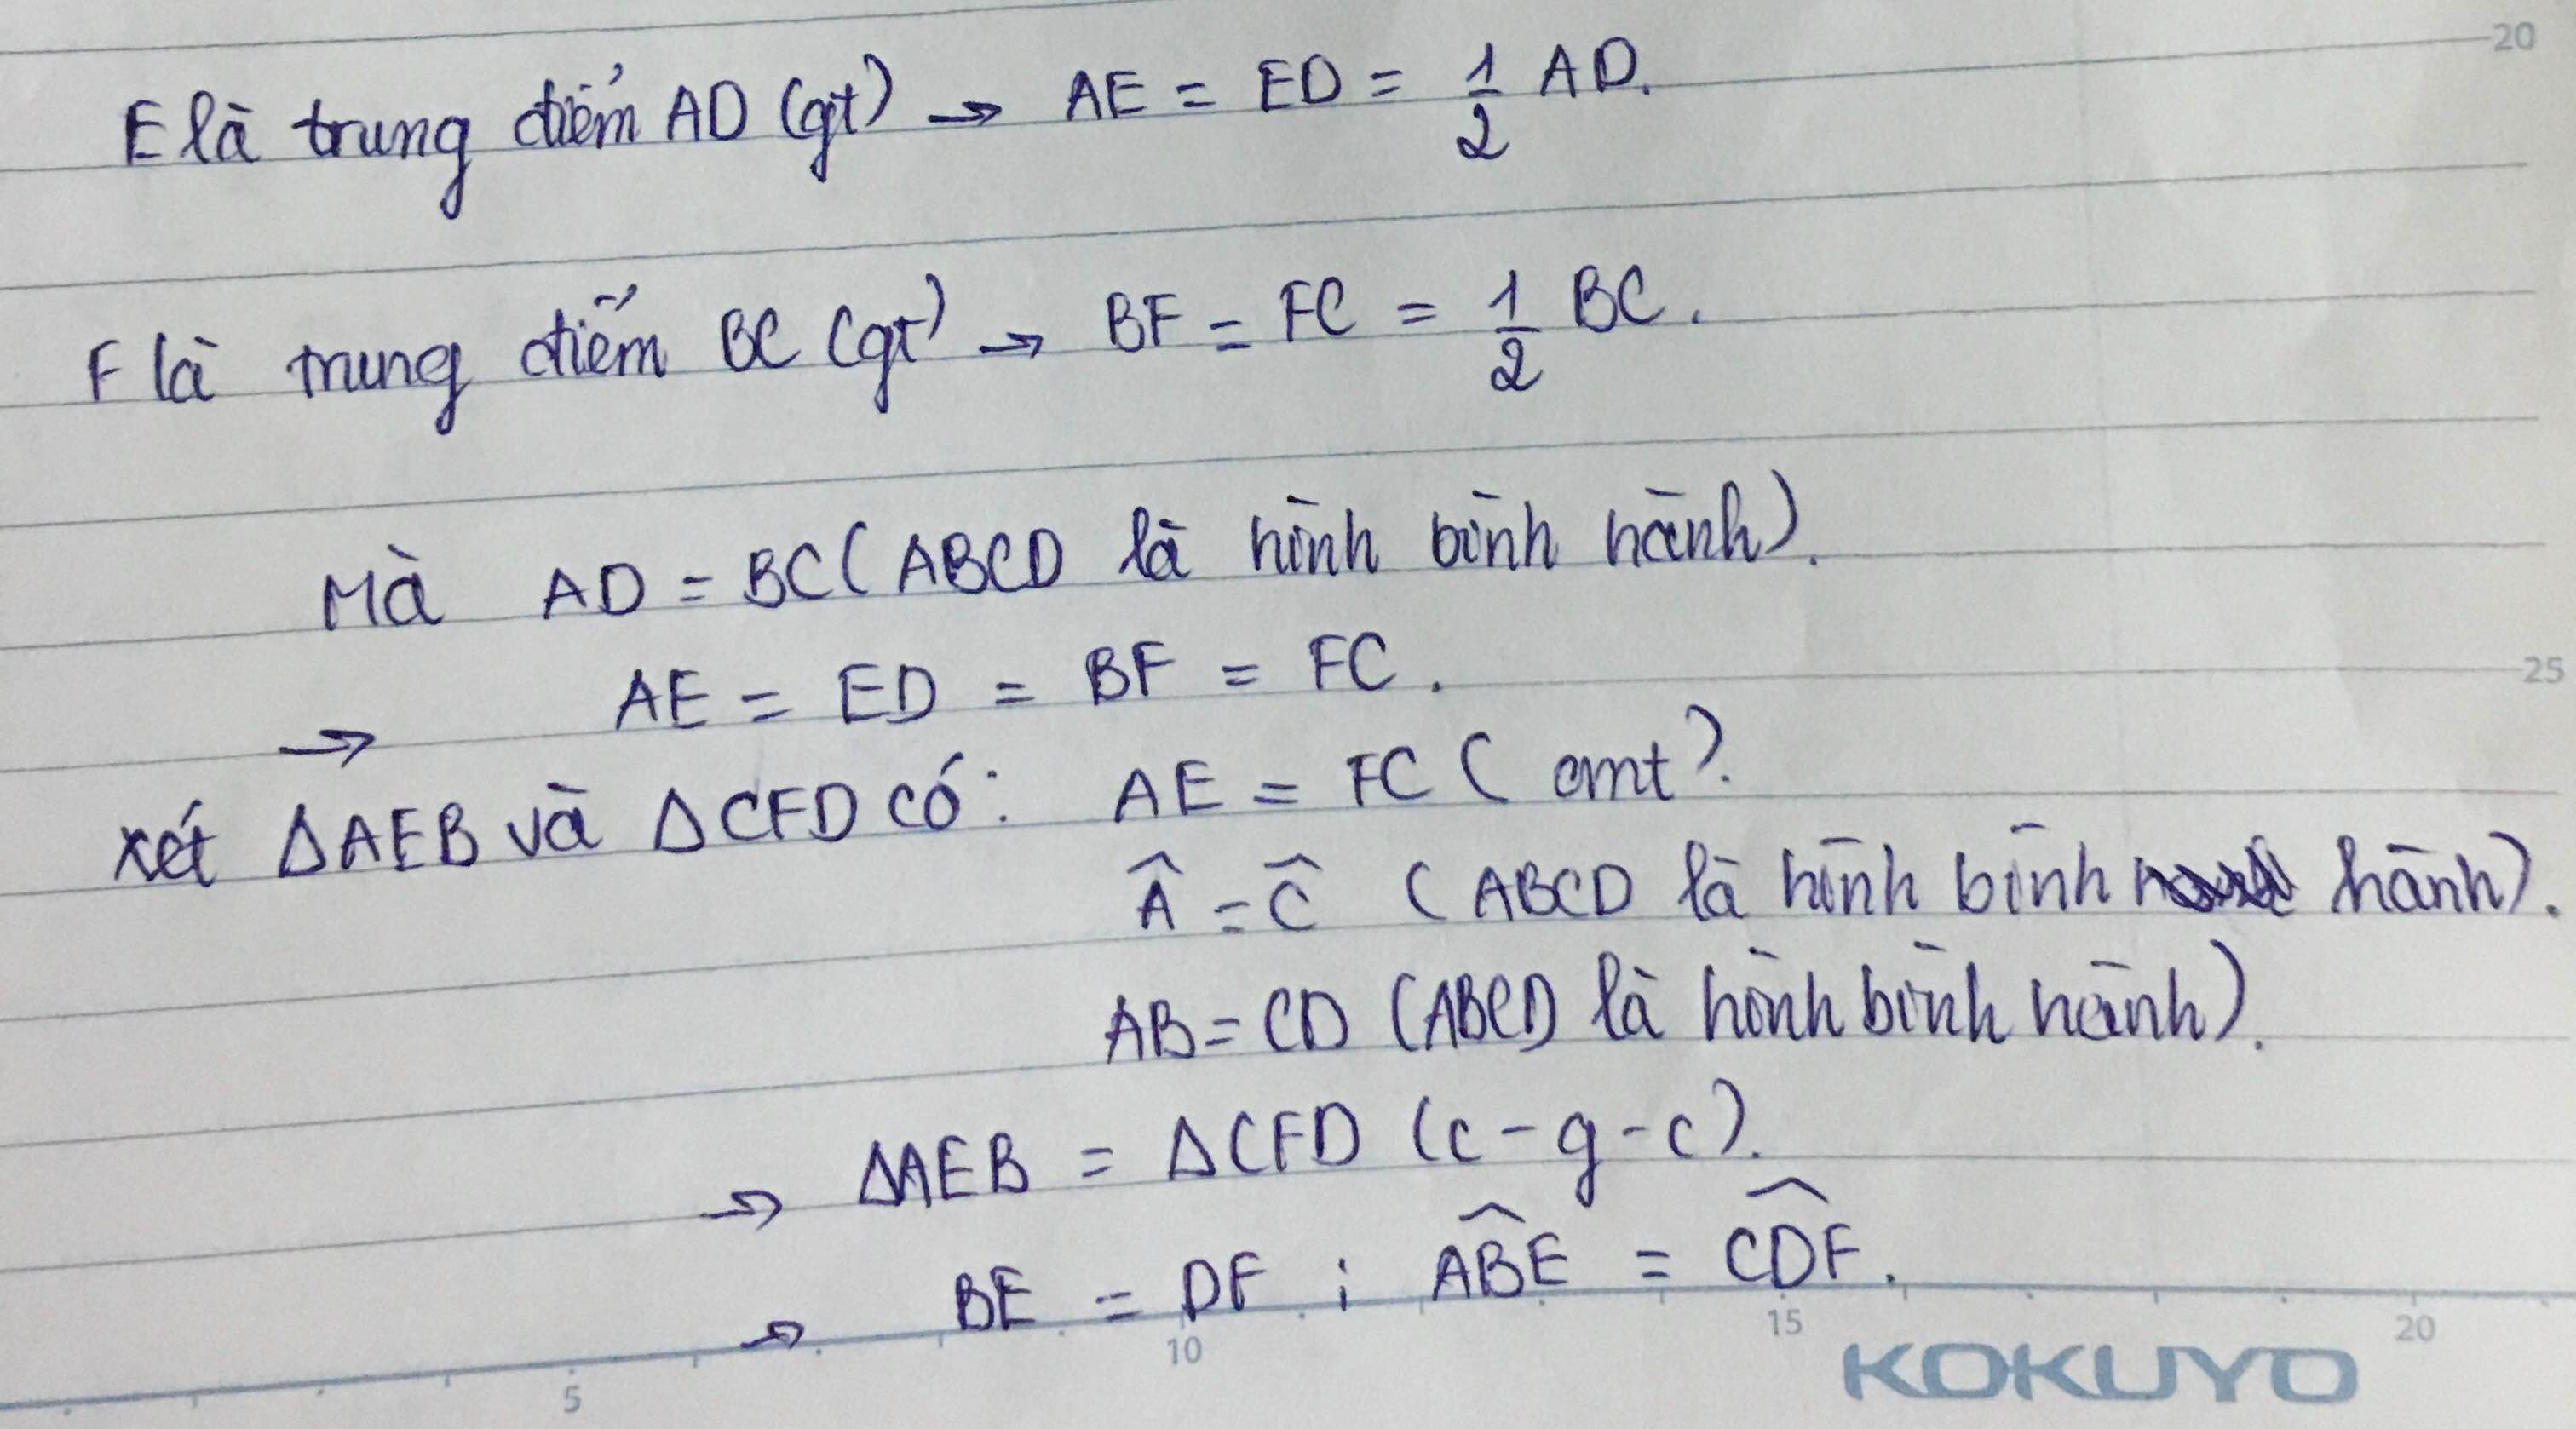 20
E là trung điểm AD (gt) → AE = ED = 1/2 AD.
F là trung điểm BC (gt) → BF = FC = 1/2 BC.
Mà AD = BC (ABCD là hình bình hành).
→ AE = ED = BF = FC.
25
xét ΔAEB và ΔCFD có: AE = FC (cmt).
Â = Ĉ (ABCD là hình bình hành).
AB = CD (ABCD là hình bình hành).
→ ΔAEB = ΔCFD (c-g-c).
→ BE = DF ; \widehat{ABE} = \widehat{CDF}.
5 10 15 20
KOKUYO